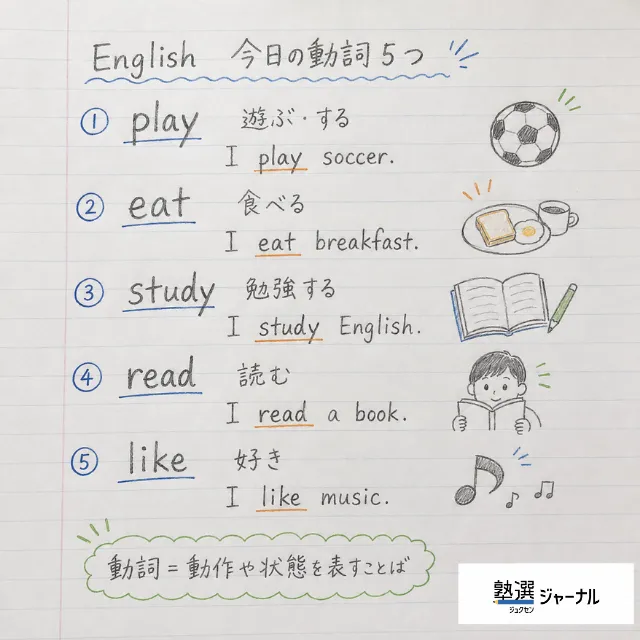 English 今日の動詞5つ
① play 遊ぶ・する
I play soccer.
② eat 食べる
I eat breakfast.
③ study 勉強する
I study English.
④ read 読む
I read a book.
⑤ like 好き
I like music.
動詞=動作や状態を表すことば
塾選ジャーナル
ジュクセン